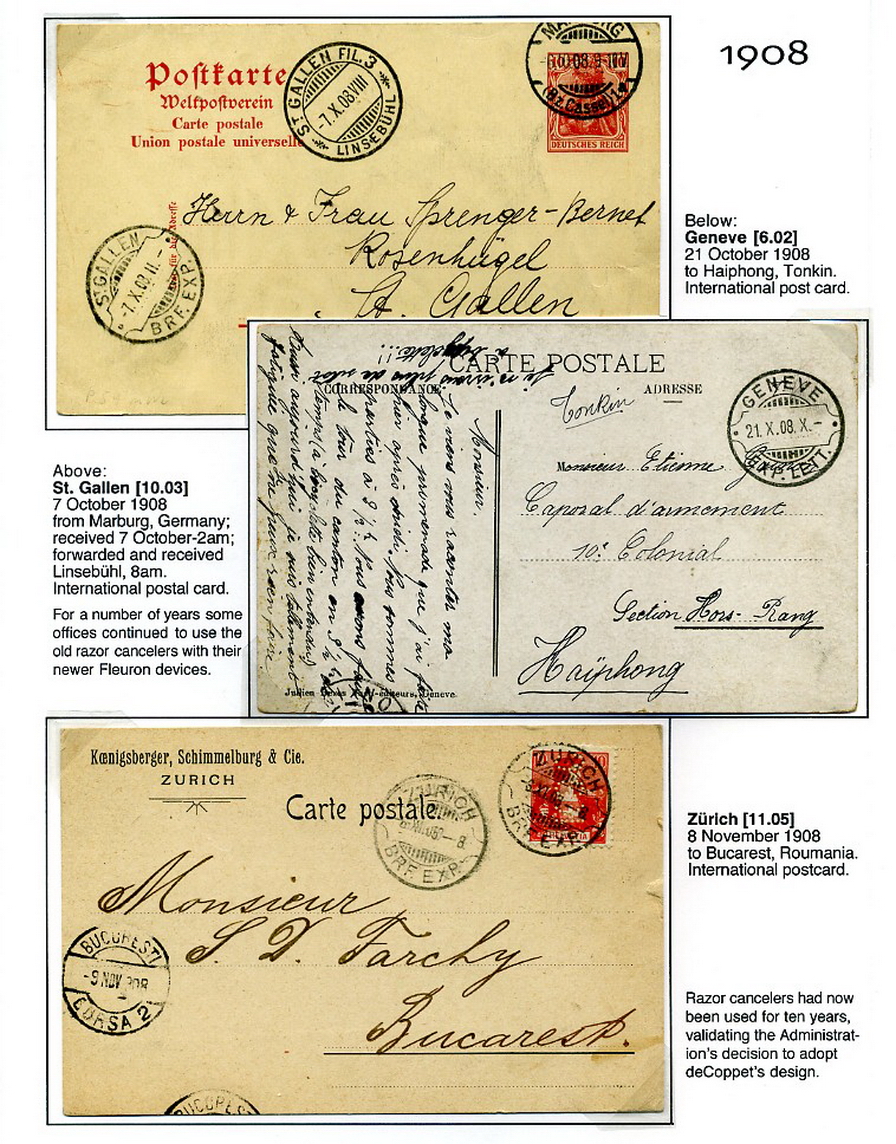 1908
Postkarte
Weltpostverein
Carte postale
Union postale universelle
ST. GALLEN FIL. 3
-7.X.08.VIII
LINSEBÜHL
MARBURG
(Bz. Cassel)
DEUTSCHES REICH
Herrn & Frau Sprenger-Bernet
Rosenhügel
St. Gallen
ST. GALLEN
-7.X.08.II.-
BRF. EXP.
Below:
Geneve [6.02]
21 October 1908
to Haiphong, Tonkin.
International post card.
Above:
St. Gallen [10.03]
7 October 1908
from Marburg, Germany;
received 7 October-2am;
forwarded and received
Linsebühl, 8am.
International postal card.
For a number of years some
offices continued to use the
old razor cancelers with their
newer Fleuron devices.
CARTE POSTALE
CORRESPONDANCE
ADRESSE
Tonkin
GENEVE
21.X.08.X.-
EXP. LETT.
Monsieur Etienne
Caporal d'armement
10e Colonial
Section Hors-Rang
Haïphong
Monsieur,
Je viens vous raconter ma
longue promenade que j'ai faite
hier après midi. Nous sommes
parties à 2 ½. Nous avons fait
le tour du canton en 3 ½ de
temps (à bicyclette bien entendu)
Aussi aujourd'hui je suis tellement
fatiguée que
à bicyclette!!!
Jullien editeurs, Geneve.
Kœnigsberger, Schimmelburg & Cie.
ZURICH
Carte postale.
ZÜRICH
BRF. EXP.
ZÜRICH
BRF. EXP.
HELVETIA
Monsieur
S. D. Farchy
Bucarest.
BUCURESTI
-9 NOV 908
CURSA 2
BUCUREST
Zürich [11.05]
8 November 1908
to Bucarest, Roumania.
International postcard.
Razor cancelers had now
been used for ten years,
validating the Administrat-
ion's decision to adopt
deCoppet's design.